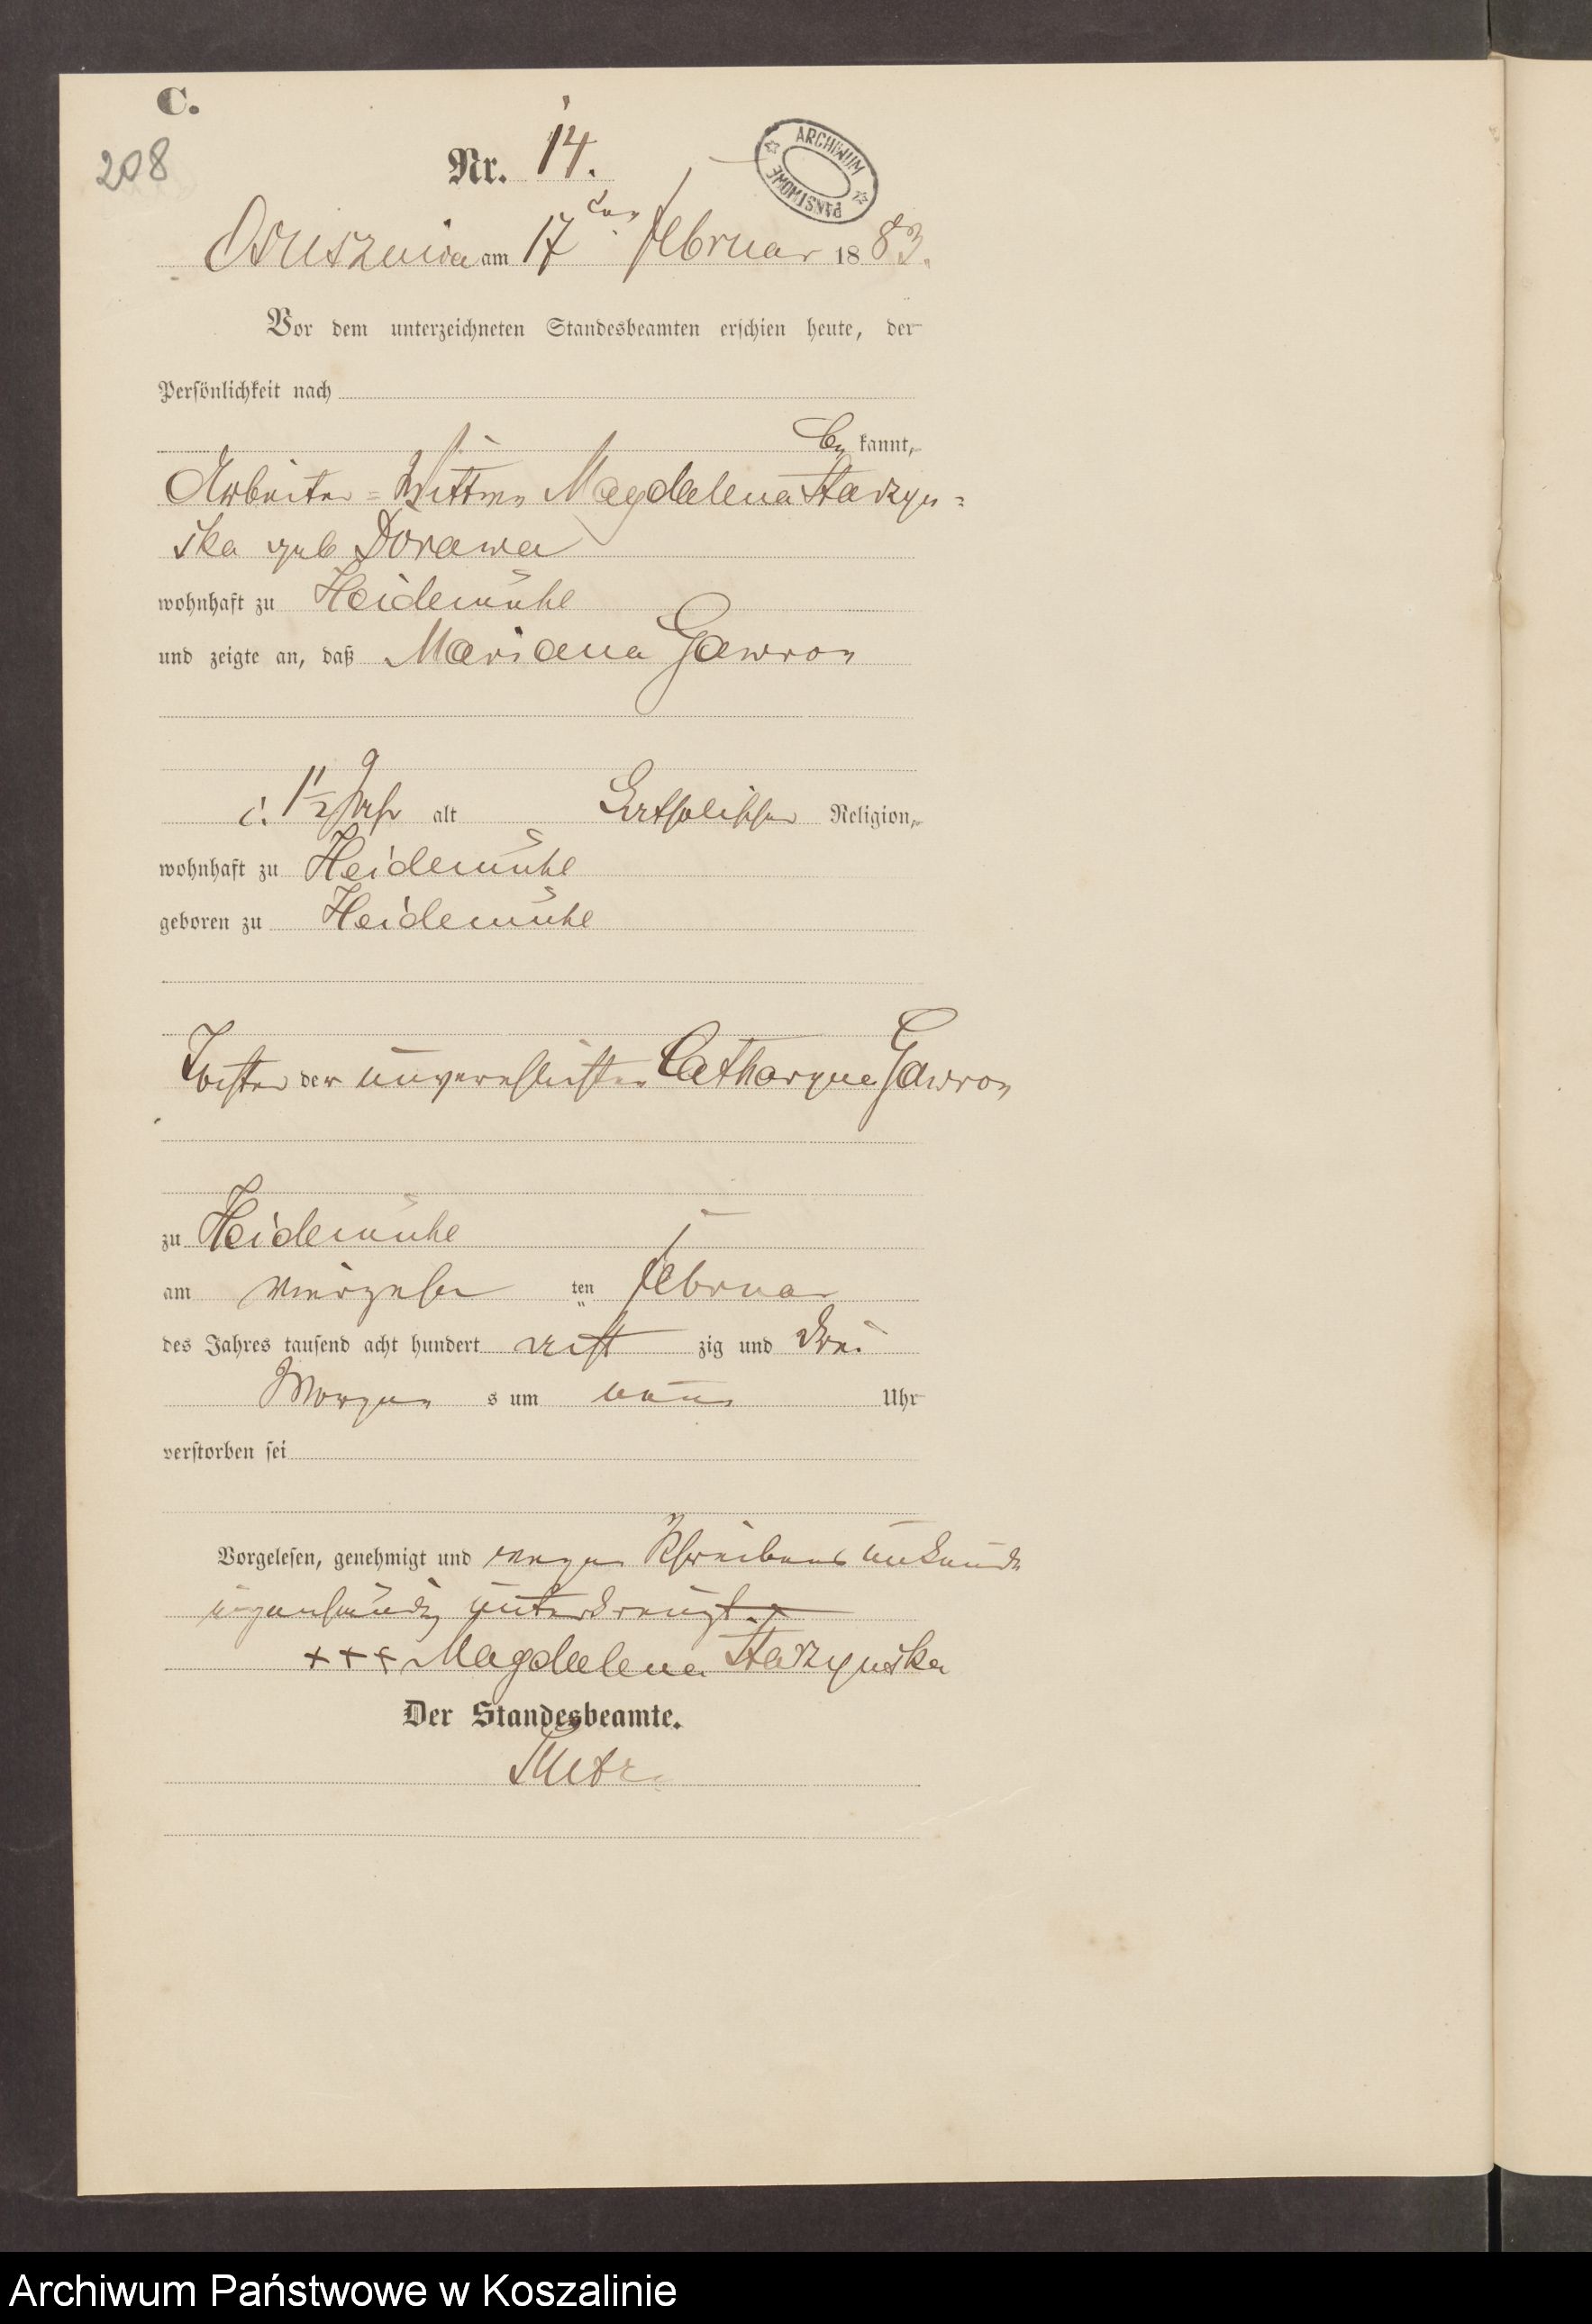 C.
208
Nr. 14.
ARCHIWUM PAŃSTWOWE
Ossuszniza am 17ten Februar 1883.
Vor dem unterzeichneten Standesbeamten erschien heute, der
Persönlichkeit nach
be kannt,
Arbeiter=Wittwe Magdalena Starzyn=
ska geb Dorawa
wohnhaft zu Heidemühl
und zeigte an, daß Mariana Gawron
1 1/2 Jahr alt katholischer Religion,
wohnhaft zu Heidemühl
geboren zu Heidemühl
Tochter der unverehlichten Catharyna Gawron
zu Heidemühl
am vierzehn ten Februar
des Jahres tausend acht hundert acht zig und drei
Morgen s um neun Uhr
verstorben sei
Vorgelesen, genehmigt und wegen Schreibens unkunde
eigenhändig unterkreuzt.
+++ Magdalena Starzynska
Der Standesbeamte.
Archiwum Państwowe w Koszalinie